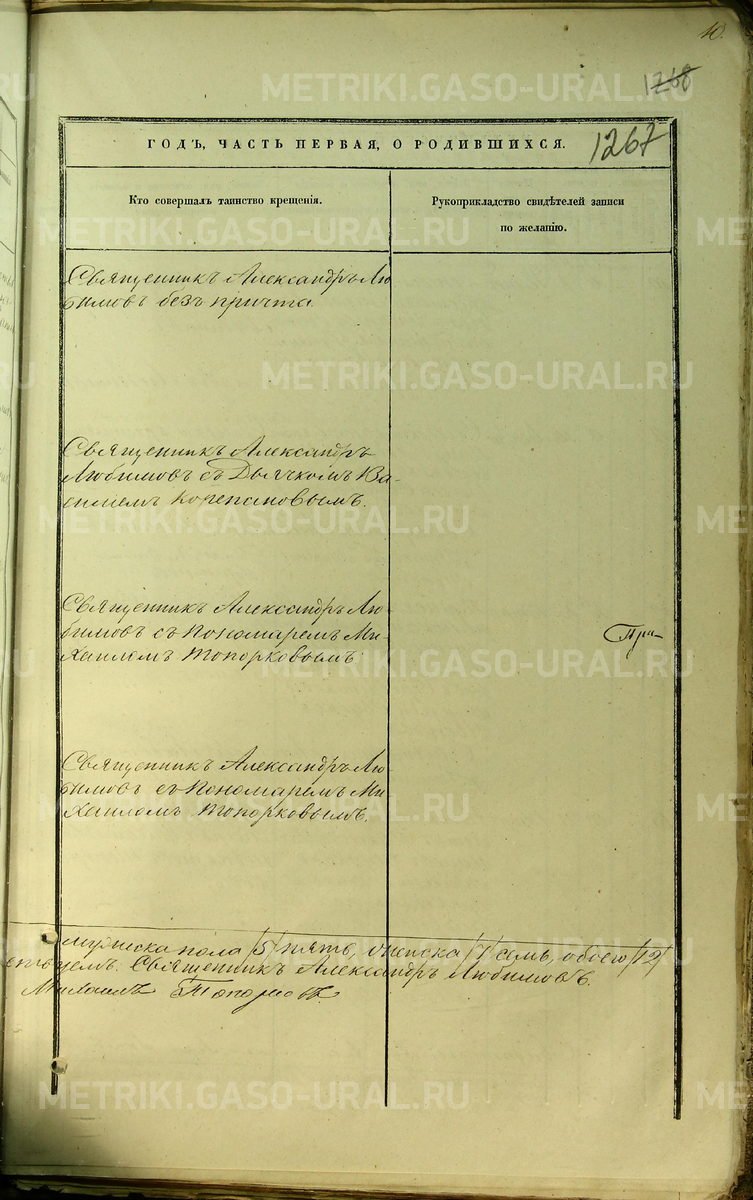 10.
1268
1267
ГОДЪ, ЧАСТЬ ПЕРВАЯ, О РОДИВШИХСЯ.
Кто совершалъ таинство крещенія.
Рукоприкладство свидѣтелей записи
по желанію.
Священникъ Александръ Лю
бимовъ безъ причта
Священникъ Александръ
Любимовъ съ Дьячкомъ Ва-
силіемъ Корепановымъ.
Священникъ Александръ Лю-
бимовъ съ Пономаремъ Ми-
хаиломъ Топорковымъ
При-
Священникъ Александръ Лю-
бимовъ съ Пономаремъ Ми-
хаиломъ Топорковымъ.
мужеска пола /5/ пять, женска /7/ семь, обоего /12/
Священникъ Александръ Любимовъ.
Михаилъ Топорковъ
METRIKI.GASO-URAL.RU